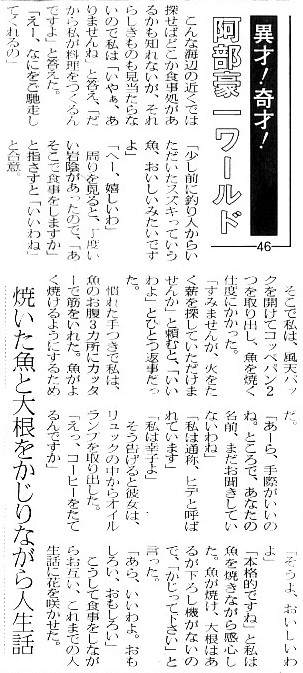 異才！奇才！
阿部豪一ワールド
46
こんな海辺の近くでは
探せばどこか食事処があ
るかも知れないが、それ
らしきものも見当たらな
いので私は「いやぁ、あ
りませんね」と答え、「だ
から私が料理をつくるん
ですよ」と答えた。
「えー、なにをご馳走し
てくれるの」
「少し前に釣り人からい
ただいたスズキっていう
魚、おいしいみたいです
よ」
「へー、嬉しいわ」
周りを見ると、丁度い
い岩陰があったので、「あ
そこで食事をしますか」
と指さすと「いいわね」
と合意。
そこで私は、風天バッ
クを開けてコッペパン2
つを取り出し、魚を焼く
仕度にかかった。
「すみませんが、火をた
く薪を探していただけま
せんか」と頼むと、「いい
わよ」とひとつ返事だっ
た。
慣れた手つきで私は、
魚のお腹3カ所にカッタ
ーで筋をいれた。魚がよ
く焼けるようにするため
だ。
「あーら、手際がいいの
ね。ところで、あなたの
名前、まだお聞きしてい
ないわね」
「私は通称、ヒデと呼ば
れています」
「私は幸子よ」
そう告げると彼女は、
リュックの中からオイル
ランプを取り出した。
「えっ、コーヒーをたて
るんですか」
「そうよ、おいしいわ
よ」
「本格的ですね」と私は
魚を焼きながら感心し
た。魚が焼け、大根はあ
るが下ろし機がないの
で、「かじって下さい」と
言った。
「あら、いいわよ。おも
しろい、おもしろい」
こうして食事をしなが
らお互い、これまでの人
生話に花を咲かせた。
焼いた魚と大根をかじりながら人生話